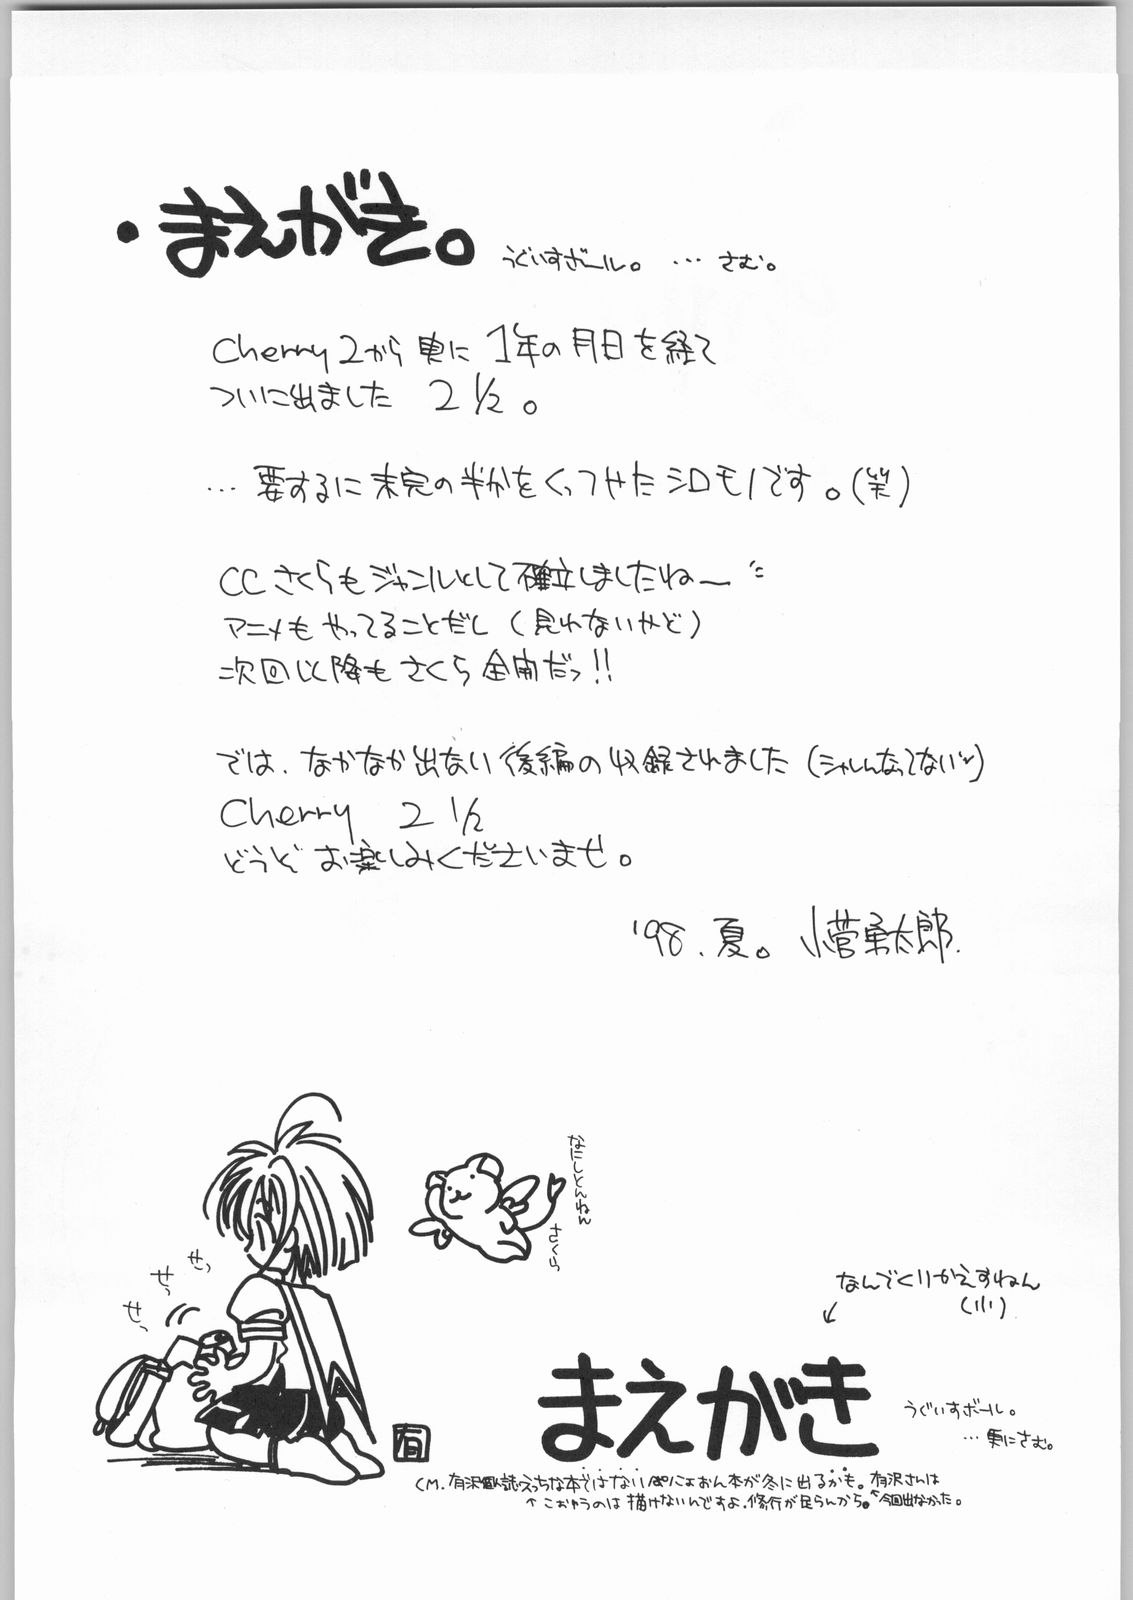 ・まえがき。
うぐいすボール。 … さむ。
Cherry 2から 更に 1年の月日を経て
ついに出ました 2 1/2 。
… 要するに 未完の半かをくっつやた シロモノです。(笑)
CCさくらもジャンルとして確立しましたねー
アニメも やってることだし (見れないやど)
次回以降も さくら 全開だっ!!
では、なかなか出ない 後編の 収録されました (シャレんなってない)
Cherry 2 1/2
どうぞ お楽しみくださいませ。
'98.夏。 小菅勇太郎.
なにしとんねん
さくら
せっ
せっ
せっ
なんでくりかえすねん
(川)
まえがき
うぐいすボール。
… 更にさむ。
有
CM.有沢個人誌えっちな本ではないぱにょおん本が冬に出るかも。有沢さんは
↑こおゆうのは描けないんですよ.修行が足らんから。↑今回出なかった。